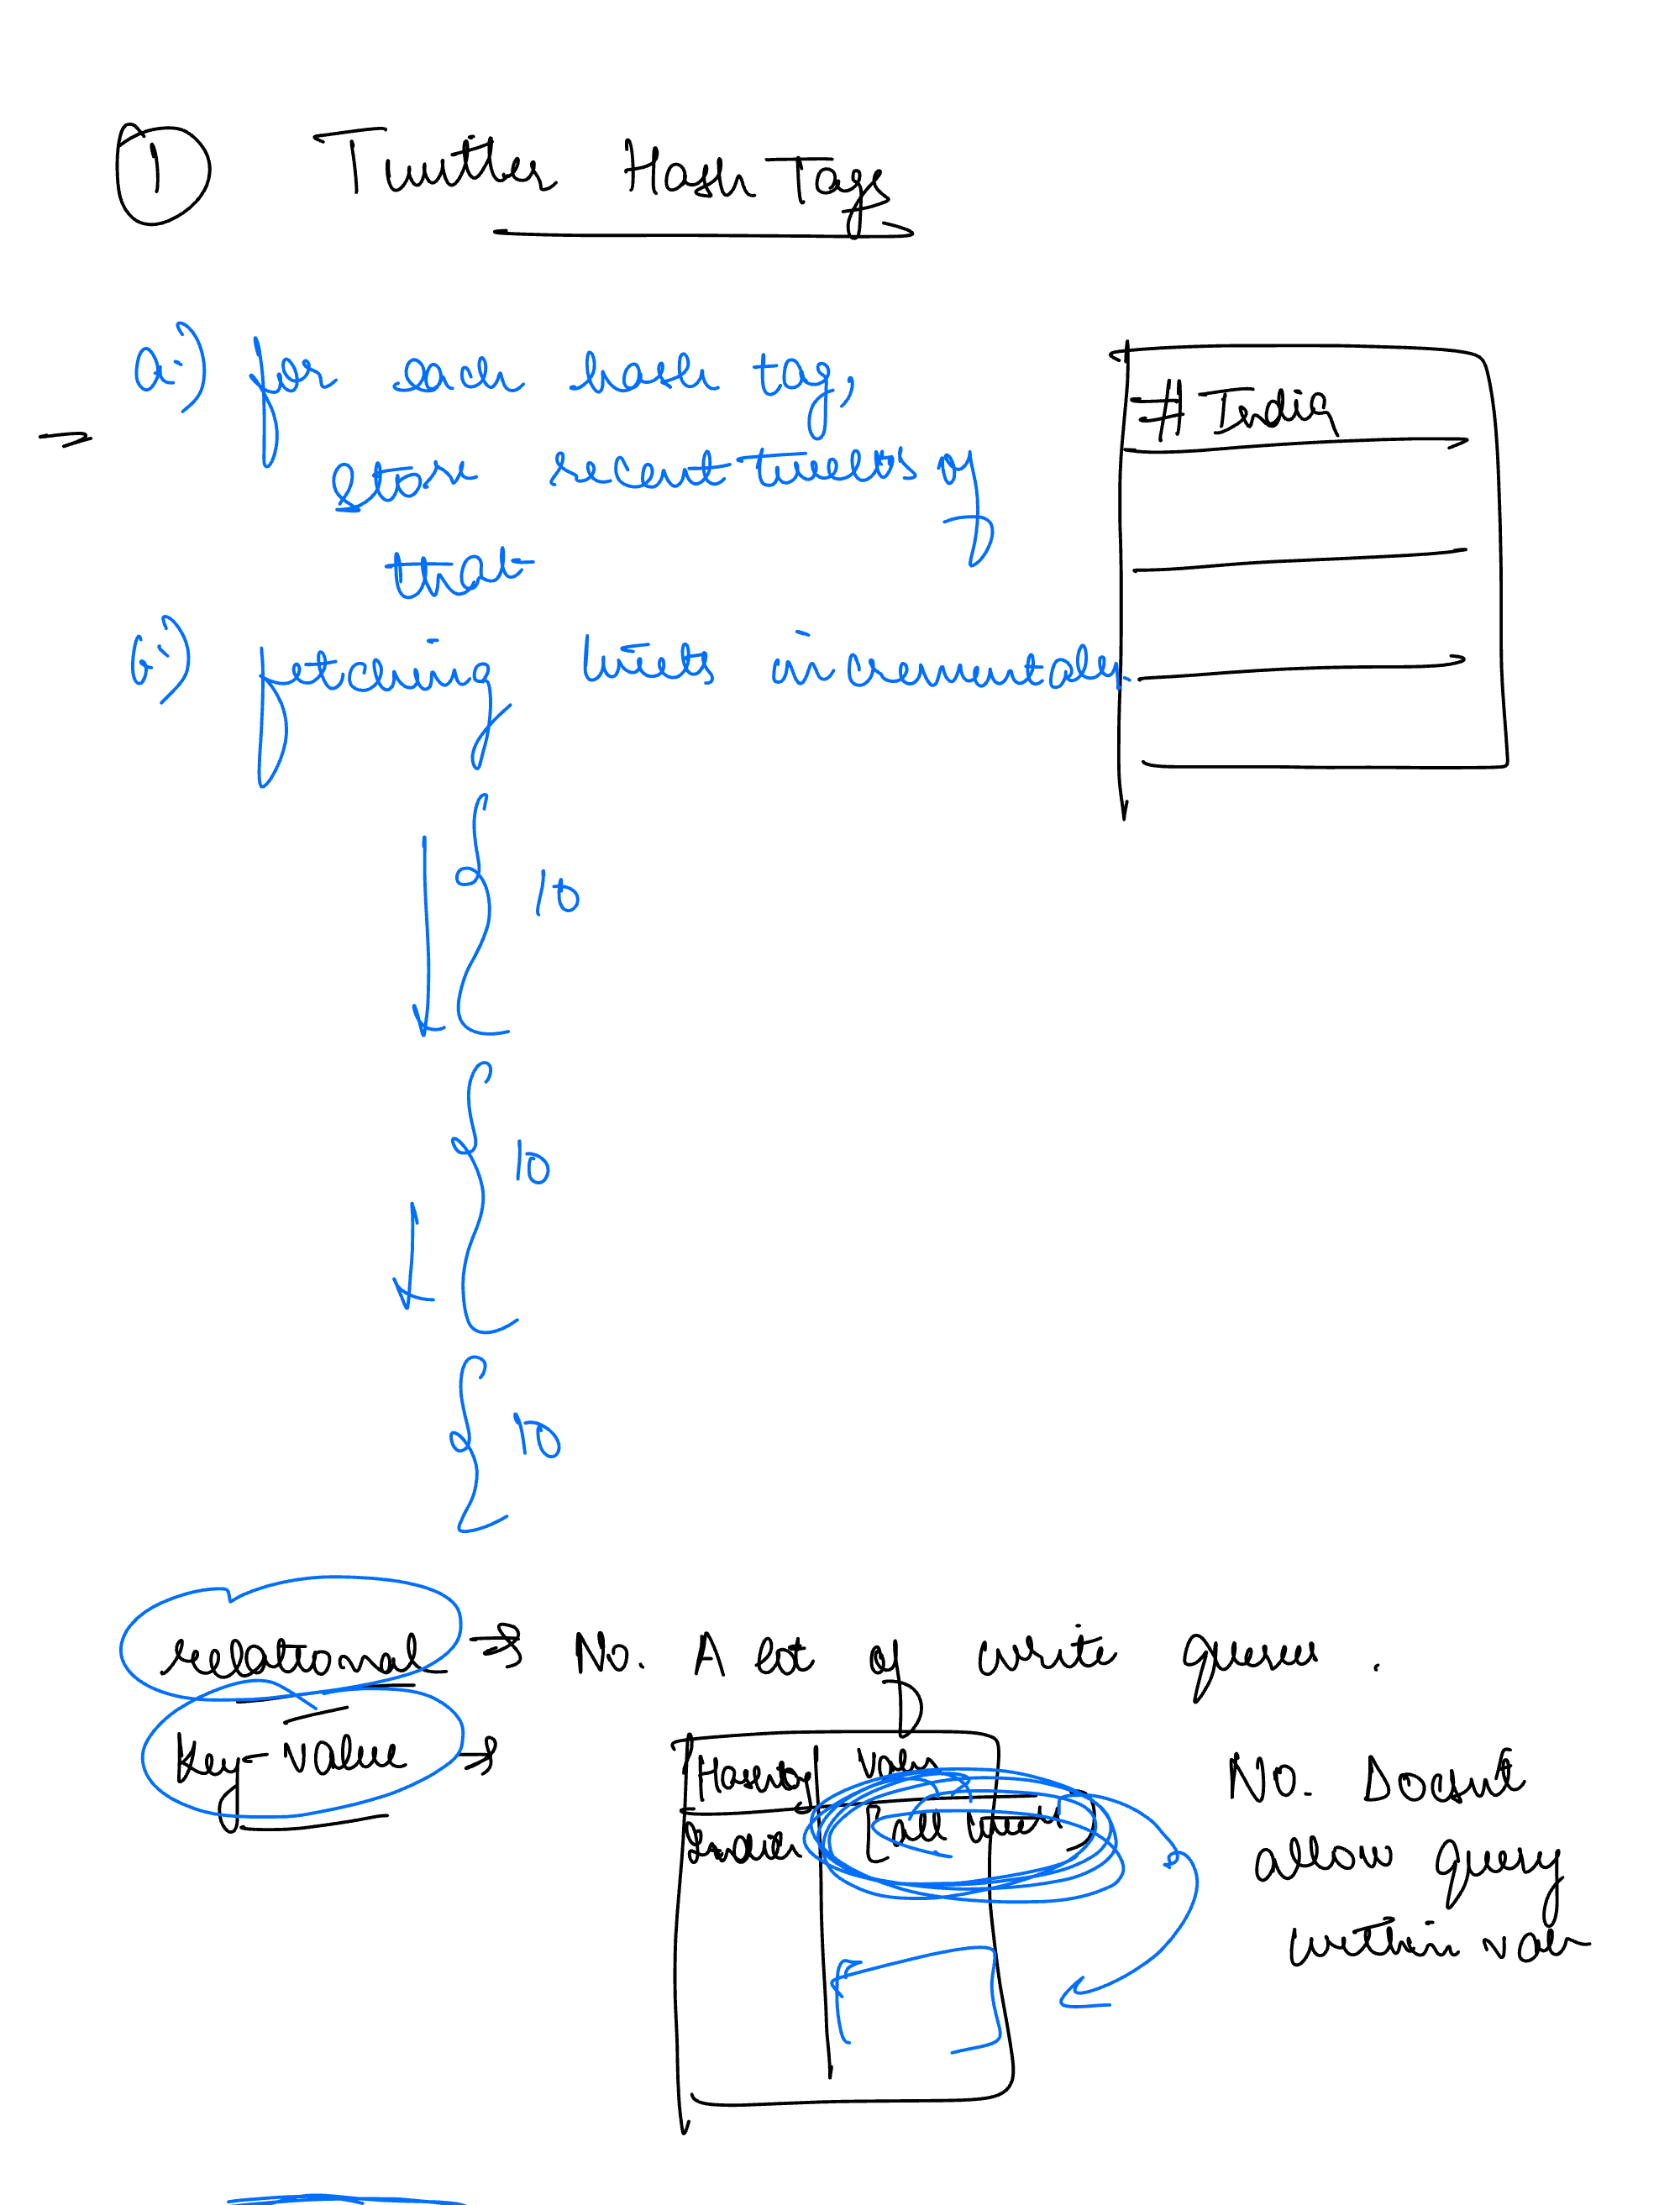 ① Twitter Hash Tags
a.) for each hash tag,
store recent tweets of
that
# India
ii) fetching tweets incrementally.
10
10
10
relational → No. A lot of write queries.
Key-Value →
Hashtag Value
India [all tweets]
No. Doesnt
allow query
within val